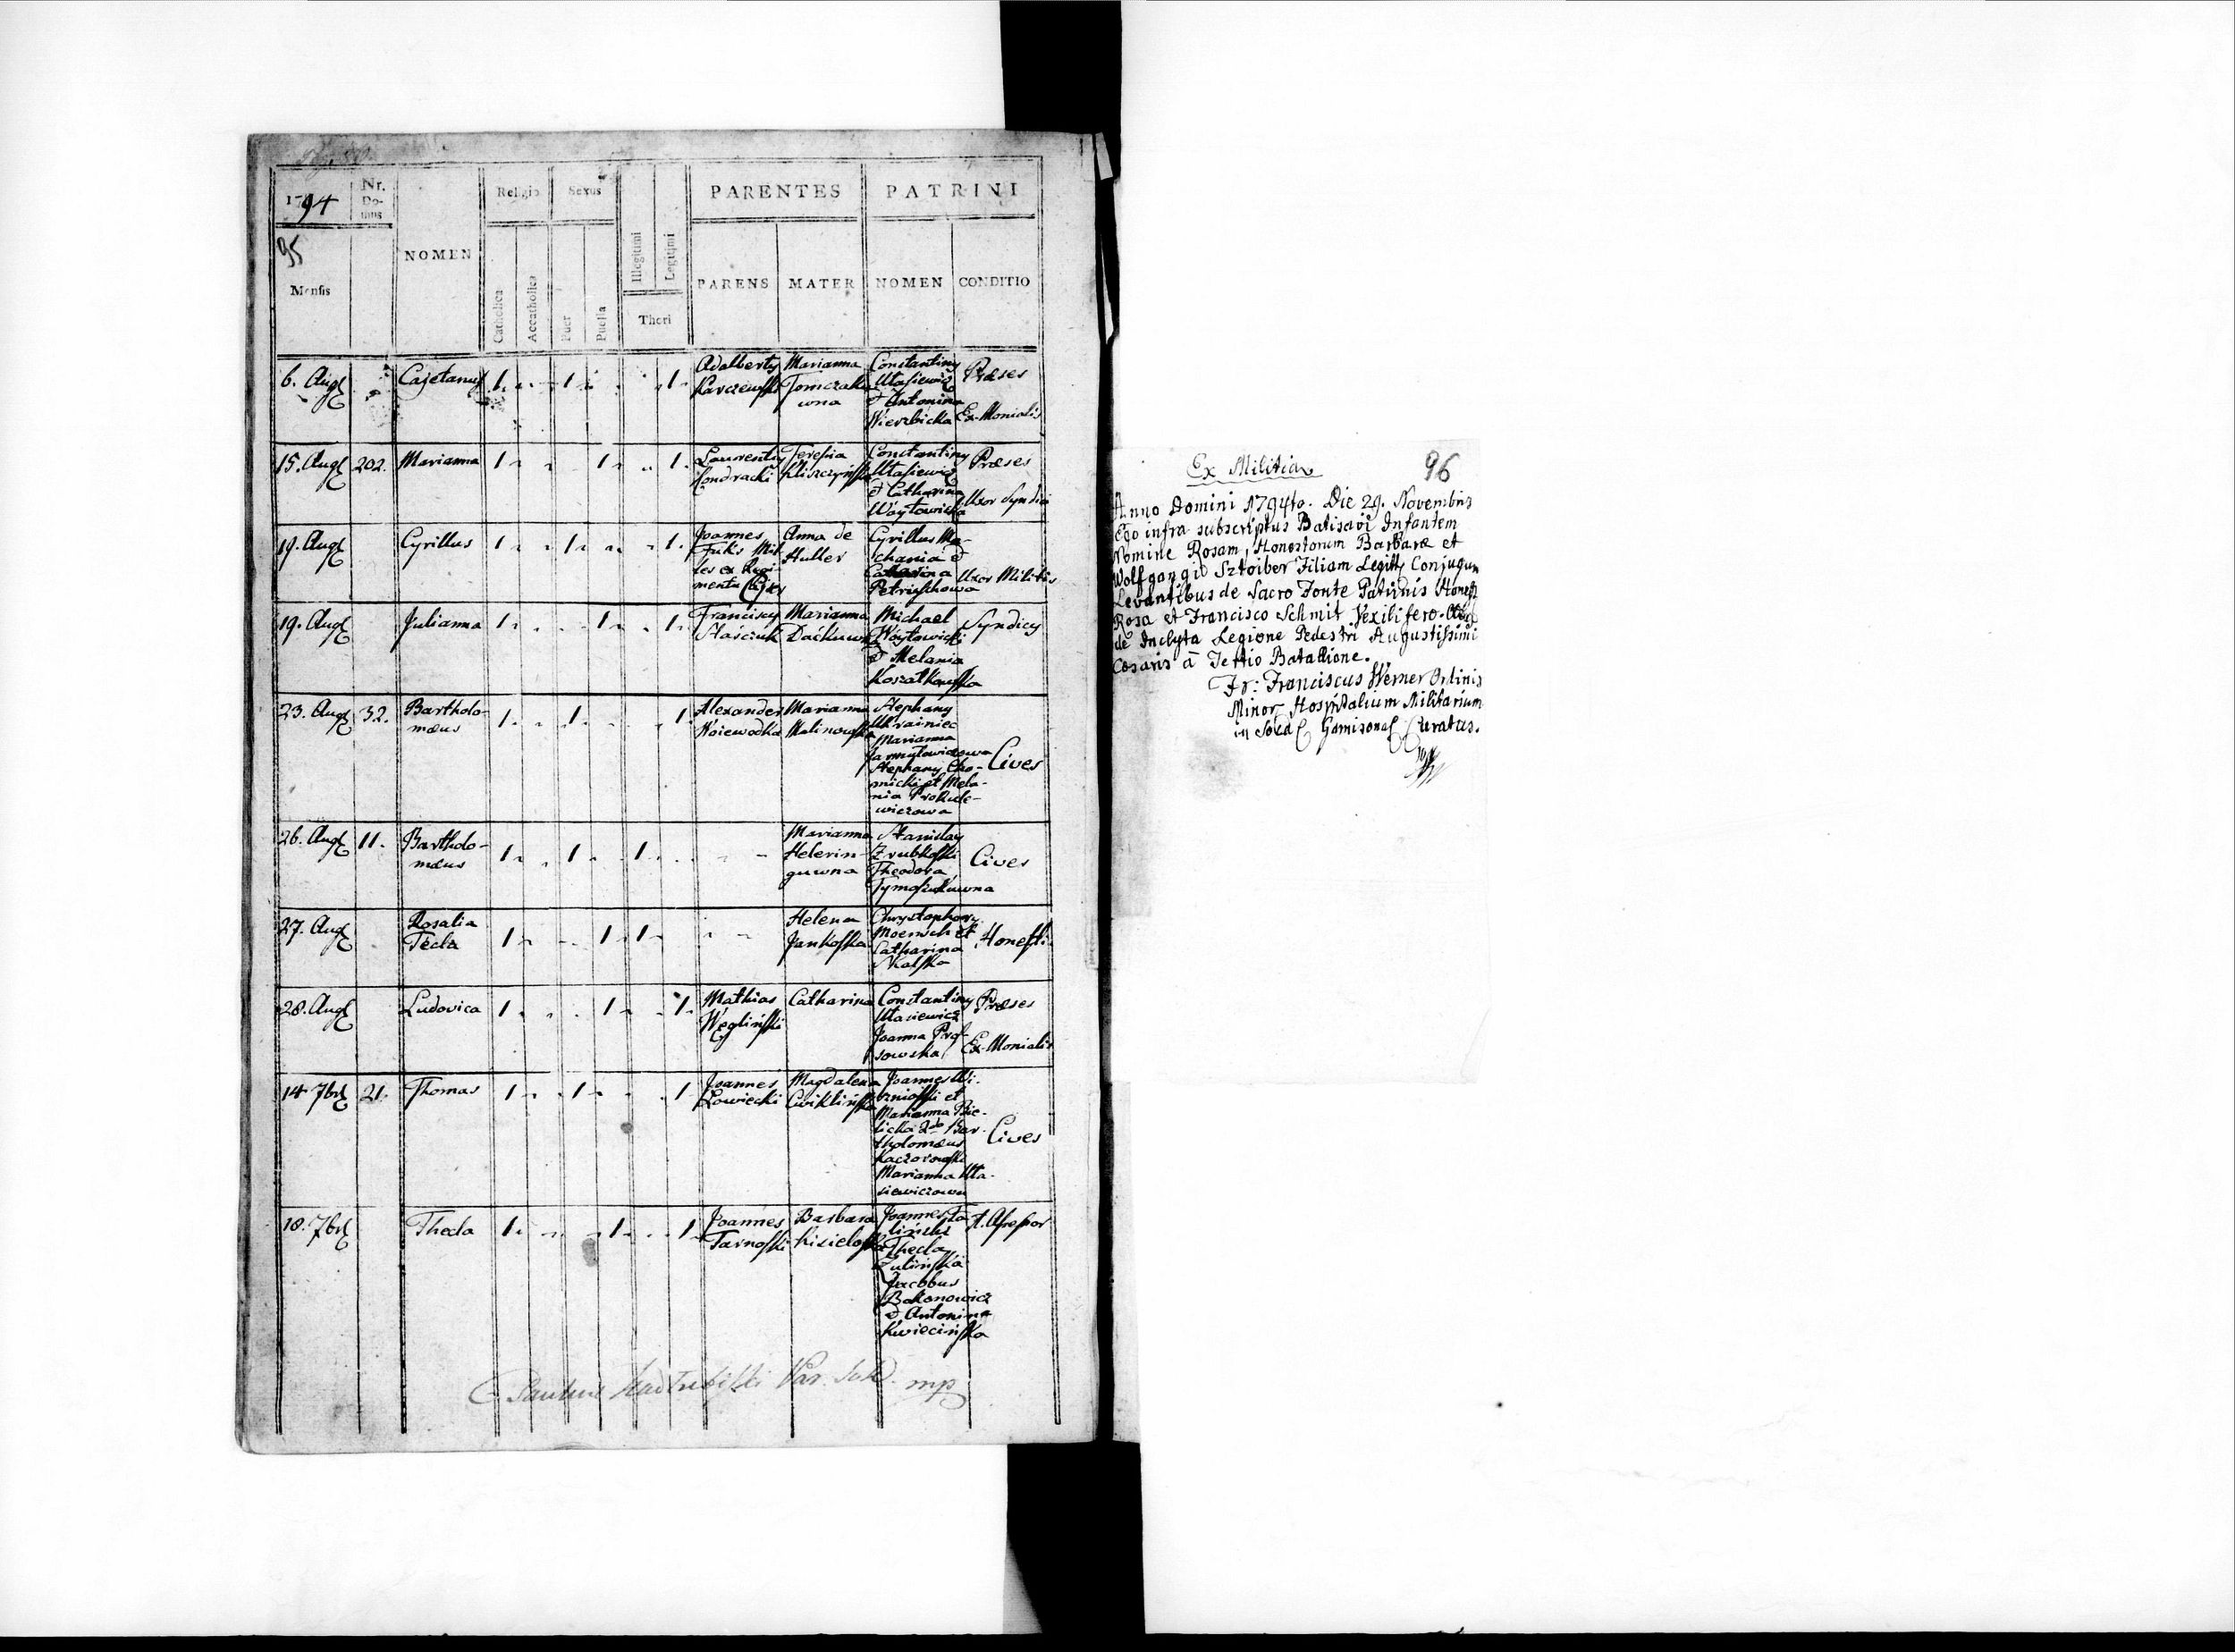 1794
Nr. Domus
NOMEN
Religio
Sexus
Illegitimi
Legitimi
PARENTES
PATRINI
95
Mensis
Catholica
Accatholica
Puer
Puella
Thori
PARENS
MATER
NOMEN
CONDITIO
6. Aug
Cajetanus
1
1
1
Adalberty
Karczewski
Marianna
Tomczaku
wna
Constantiny
Utasiewicz
& Antonina
Wierzbicka
Præses
Ex-Monialis
15. Aug
202.
Marianna
1
1
1
Laurenty
Kondracki
Teresia
Kliszczyńska
Constantiny
Utasiewicz
& Catharina
Woytowicka
Præses
Uxor Syndici
19. Aug
Cyrillus
1
1
1
Joannes
Fuks Mil
les ex Regi
mentu
Anna de
Huller
Cyrillus Ma-
chania &
Catharina
Petriszkowa
Uxor Militis
19. Aug
Julianna
1
1
1
Franciscy
Staściuk
Marianna
Michael
Woytowicki
& Melania
Koszalkowska
Syndicy
23. Aug
32.
Bartholo-
mæus
1
1
1
Alexander
Woiewodka
Marianna
Malinowska
Stephany
Ukrainiec
Marianna
Stephany Cho-
micki et Mela-
nia Prokule-
wiczowa
Cives
26. Aug
11.
Bartholo-
mæus
1
1
1
Marianna
Helerin-
guwna
Stanislay
Zrubkoski
Theodora
Tymoszukuwna
Cives
27. Aug
Rosalia
Tecla
1
1
1
Helena
Jankoska
Chrystophory
Moensch et
Catharina
Skalska
Honesti
28. Aug
Ludovica
1
1
1
Mathias
Węgliński
Catharina
Constantiny
Utasiewicz
Joanna
sowska
Præses
Ex-Monialis
14 7br
21.
Thomas
1
1
1
Joannes
Łowiecki
Magdalena
Cwiklińska
Joannes Wi-
zniosski et
Marianna Bie-
licka 2do Bar-
tholomæus
Kaczorowski
Marianna Uta-
siewiczowa
Cives
18. 7br
Thecla
1
1
1
Joannes
Tarnoski
Barbara
Kisieloska
Joannes
Thecla
Zulińska
Jacobus
Bakonowicz
& Antonina
Kwiecińska
A. Assessor
Paulus
mp
Ex Militia
96
Anno Domini 1794to. Die 29. Novembris
Ego infra subscriptus Batisavi Infantem
Nomine Rosam, Honestorum Barbaræ et
Wolfgangi Sztoiber Filiam Legitt. Conjugum
Levantibus de Sacro Fonte Patrinis Honest
Rosa et Francisco Schmit Vexilifero
de Inclyta Legione Pedestri Augustissimi
Cesaris à Tertio Batallione.
Fr: Franciscus Werner Ordinis
Minor Hospitalium Militarium
Garnisona Curatus.